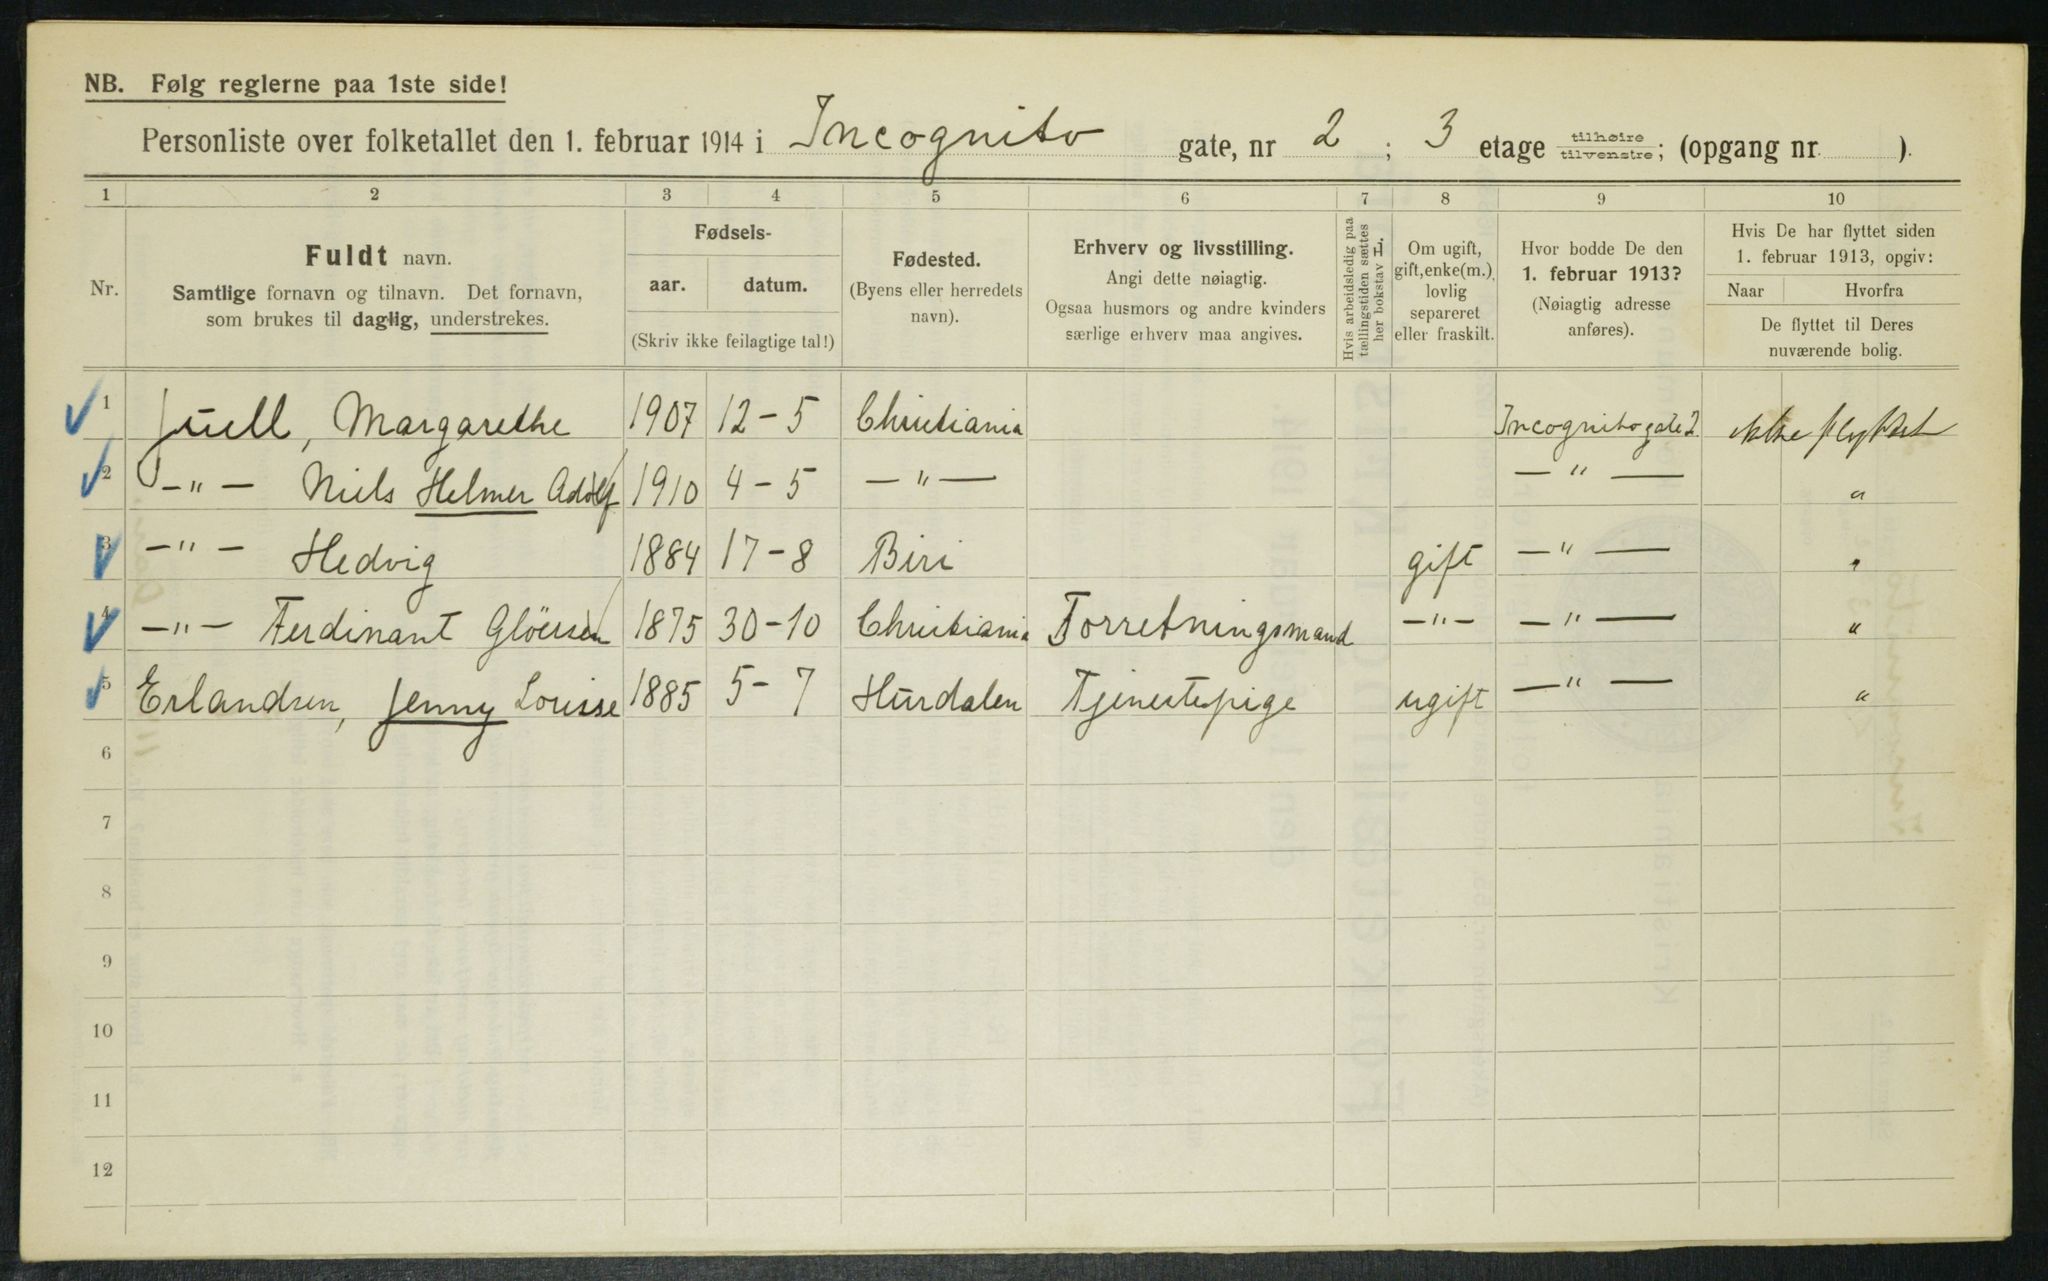 NB. Følg reglerne paa 1ste side!
Personliste over folketallet den 1. februar 1914 i Incognito gate, nr 2; 3 etage tilhøire tilvenstre; (opgang nr. ).
1 2 3 4 5 6 7 8 9 10
Nr.
Fuldt navn.
Samtlige fornavn og tilnavn. Det fornavn,
som brukes til daglig, understrekes.
Fødsels-
aar. datum.
(Skriv ikke feilagtige tal!)
Fødested.
(Byens eller herredets
navn).
Erhverv og livsstilling.
Angi dette nøiagtig.
Ogsaa husmors og andre kvinders
særlige erhverv maa angives.
Hvis arbeidsledig paa
tællingstiden sættes
her bokstav L.
Om ugift,
gift, enke(m.),
lovlig
separeret
eller fraskilt.
Hvor bodde De den
1. februar 1913?
(Nøiagtig adresse
anføres).
Hvis De har flyttet siden
1. februar 1913, opgiv:
Naar Hvorfra
De flyttet til Deres
nuværende bolig.
1 Juell, Margarethe 1907 12-5 Christiania Incognitogate 2. ikke flyttet
2 -"- Niels Helmer Adolf 1910 4-5 -"- -"- "
3 -"- Hedvig 1884 17-8 Biri gift -"- "
4 -"- Ferdinant Glöersen 1875 30-10 Christiania Forretningsmand -"- -"- "
5 Erlandsen, Jenny Louisse 1885 5-7 Hurdalen Tjenestepige ugift -"- "
6
7
8
9
10
11
12